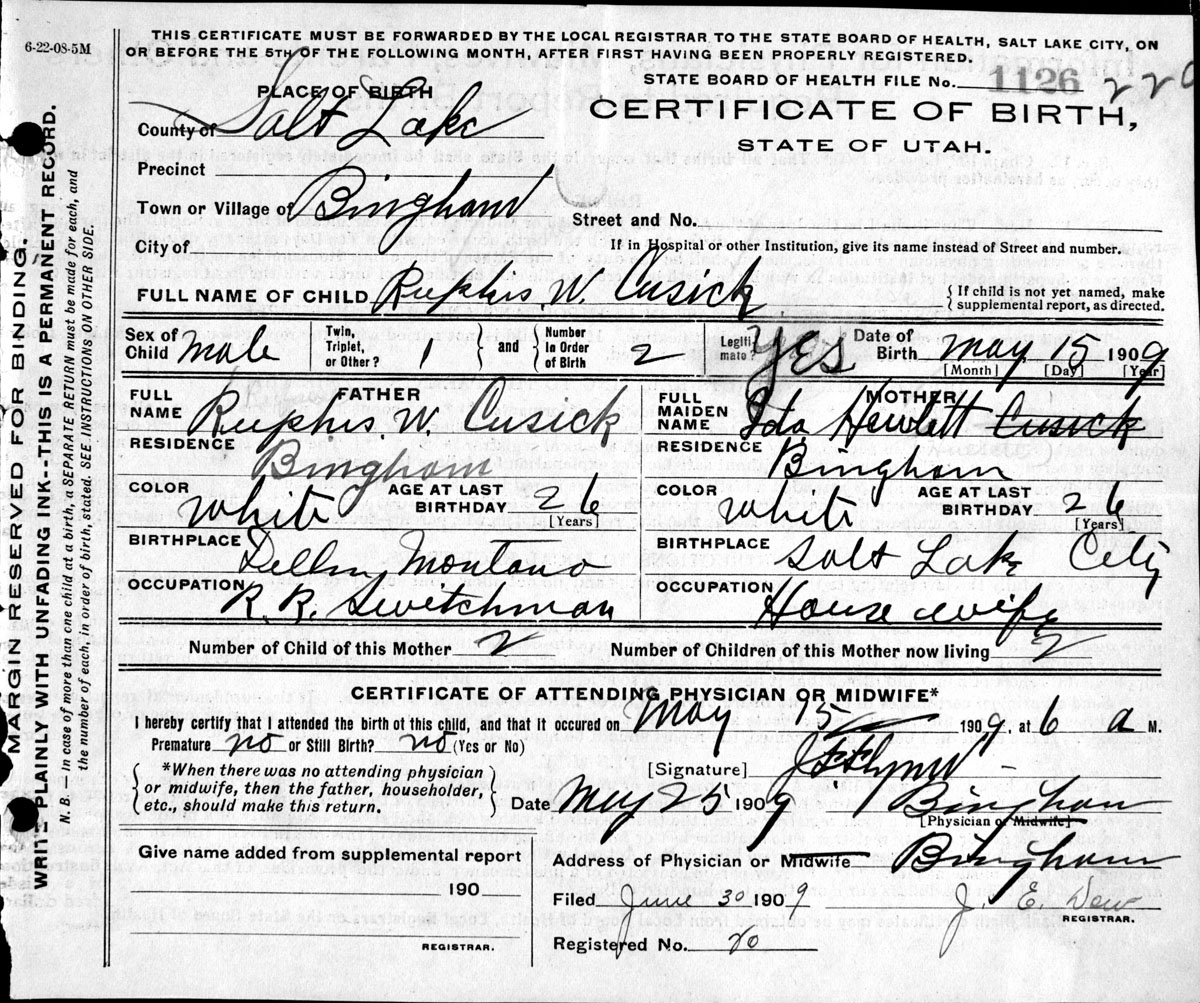 6-22-08-5M
THIS CERTIFICATE MUST BE FORWARDED BY THE LOCAL REGISTRAR TO THE STATE BOARD OF HEALTH, SALT LAKE CITY, ON
OR BEFORE THE 5TH OF THE FOLLOWING MONTH, AFTER FIRST HAVING BEEN PROPERLY REGISTERED.
STATE BOARD OF HEALTH FILE No. 1126 220
PLACE OF BIRTH
CERTIFICATE OF BIRTH,
STATE OF UTAH.
County of Salt Lake
Precinct
Town or Village of Bingham
Street and No.
City of
If in Hospital or other Institution, give its name instead of Street and number.
FULL NAME OF CHILD Ruphis. W. Cusick
{ If child is not yet named, make
supplemental report, as directed.
Sex of Child Male
Twin, Triplet, or Other? 1 } and { Number in Order of Birth 2
Legitimate? Yes
Date of Birth May 15 1909
[Month] [Day] [Year]
FATHER
FULL NAME Ruphis. W. Cusick
RESIDENCE Bingham
COLOR White AGE AT LAST BIRTHDAY 26
[Years]
BIRTHPLACE Montana
OCCUPATION R. R. Switchman
MOTHER
FULL MAIDEN NAME Ida Hewlett Cusick
RESIDENCE Bingham
COLOR White AGE AT LAST BIRTHDAY 26
[Years]
BIRTHPLACE Salt Lake City
OCCUPATION House wife
Number of Child of this Mother 2
Number of Children of this Mother now living 2
CERTIFICATE OF ATTENDING PHYSICIAN OR MIDWIFE*
I hereby certify that I attended the birth of this child, and that it occured on May 15 1909, at 6 a M.
Premature no or Still Birth? no (Yes or No)
{ *When there was no attending physician
or midwife, then the father, householder,
etc., should make this return. }
[Signature] J F Flynn
Date May 25 1909 Bingham
[Physician or Midwife]
Address of Physician or Midwife Bingham
Give name added from supplemental report
190
REGISTRAR.
Filed June 30 1909 J. E. Dew
REGISTRAR.
Registered No. 20
MARGIN RESERVED FOR BINDING.
WRITE PLAINLY WITH UNFADING INK--THIS IS A PERMANENT RECORD.
N. B. In case of more than one child at a birth, a SEPARATE RETURN must be made for each, and
the number of each, in order of birth, stated. SEE INSTRUCTIONS ON OTHER SIDE.